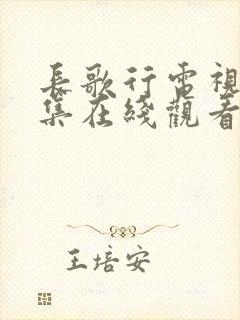 長歌行電視
集在綫觀看
王培安